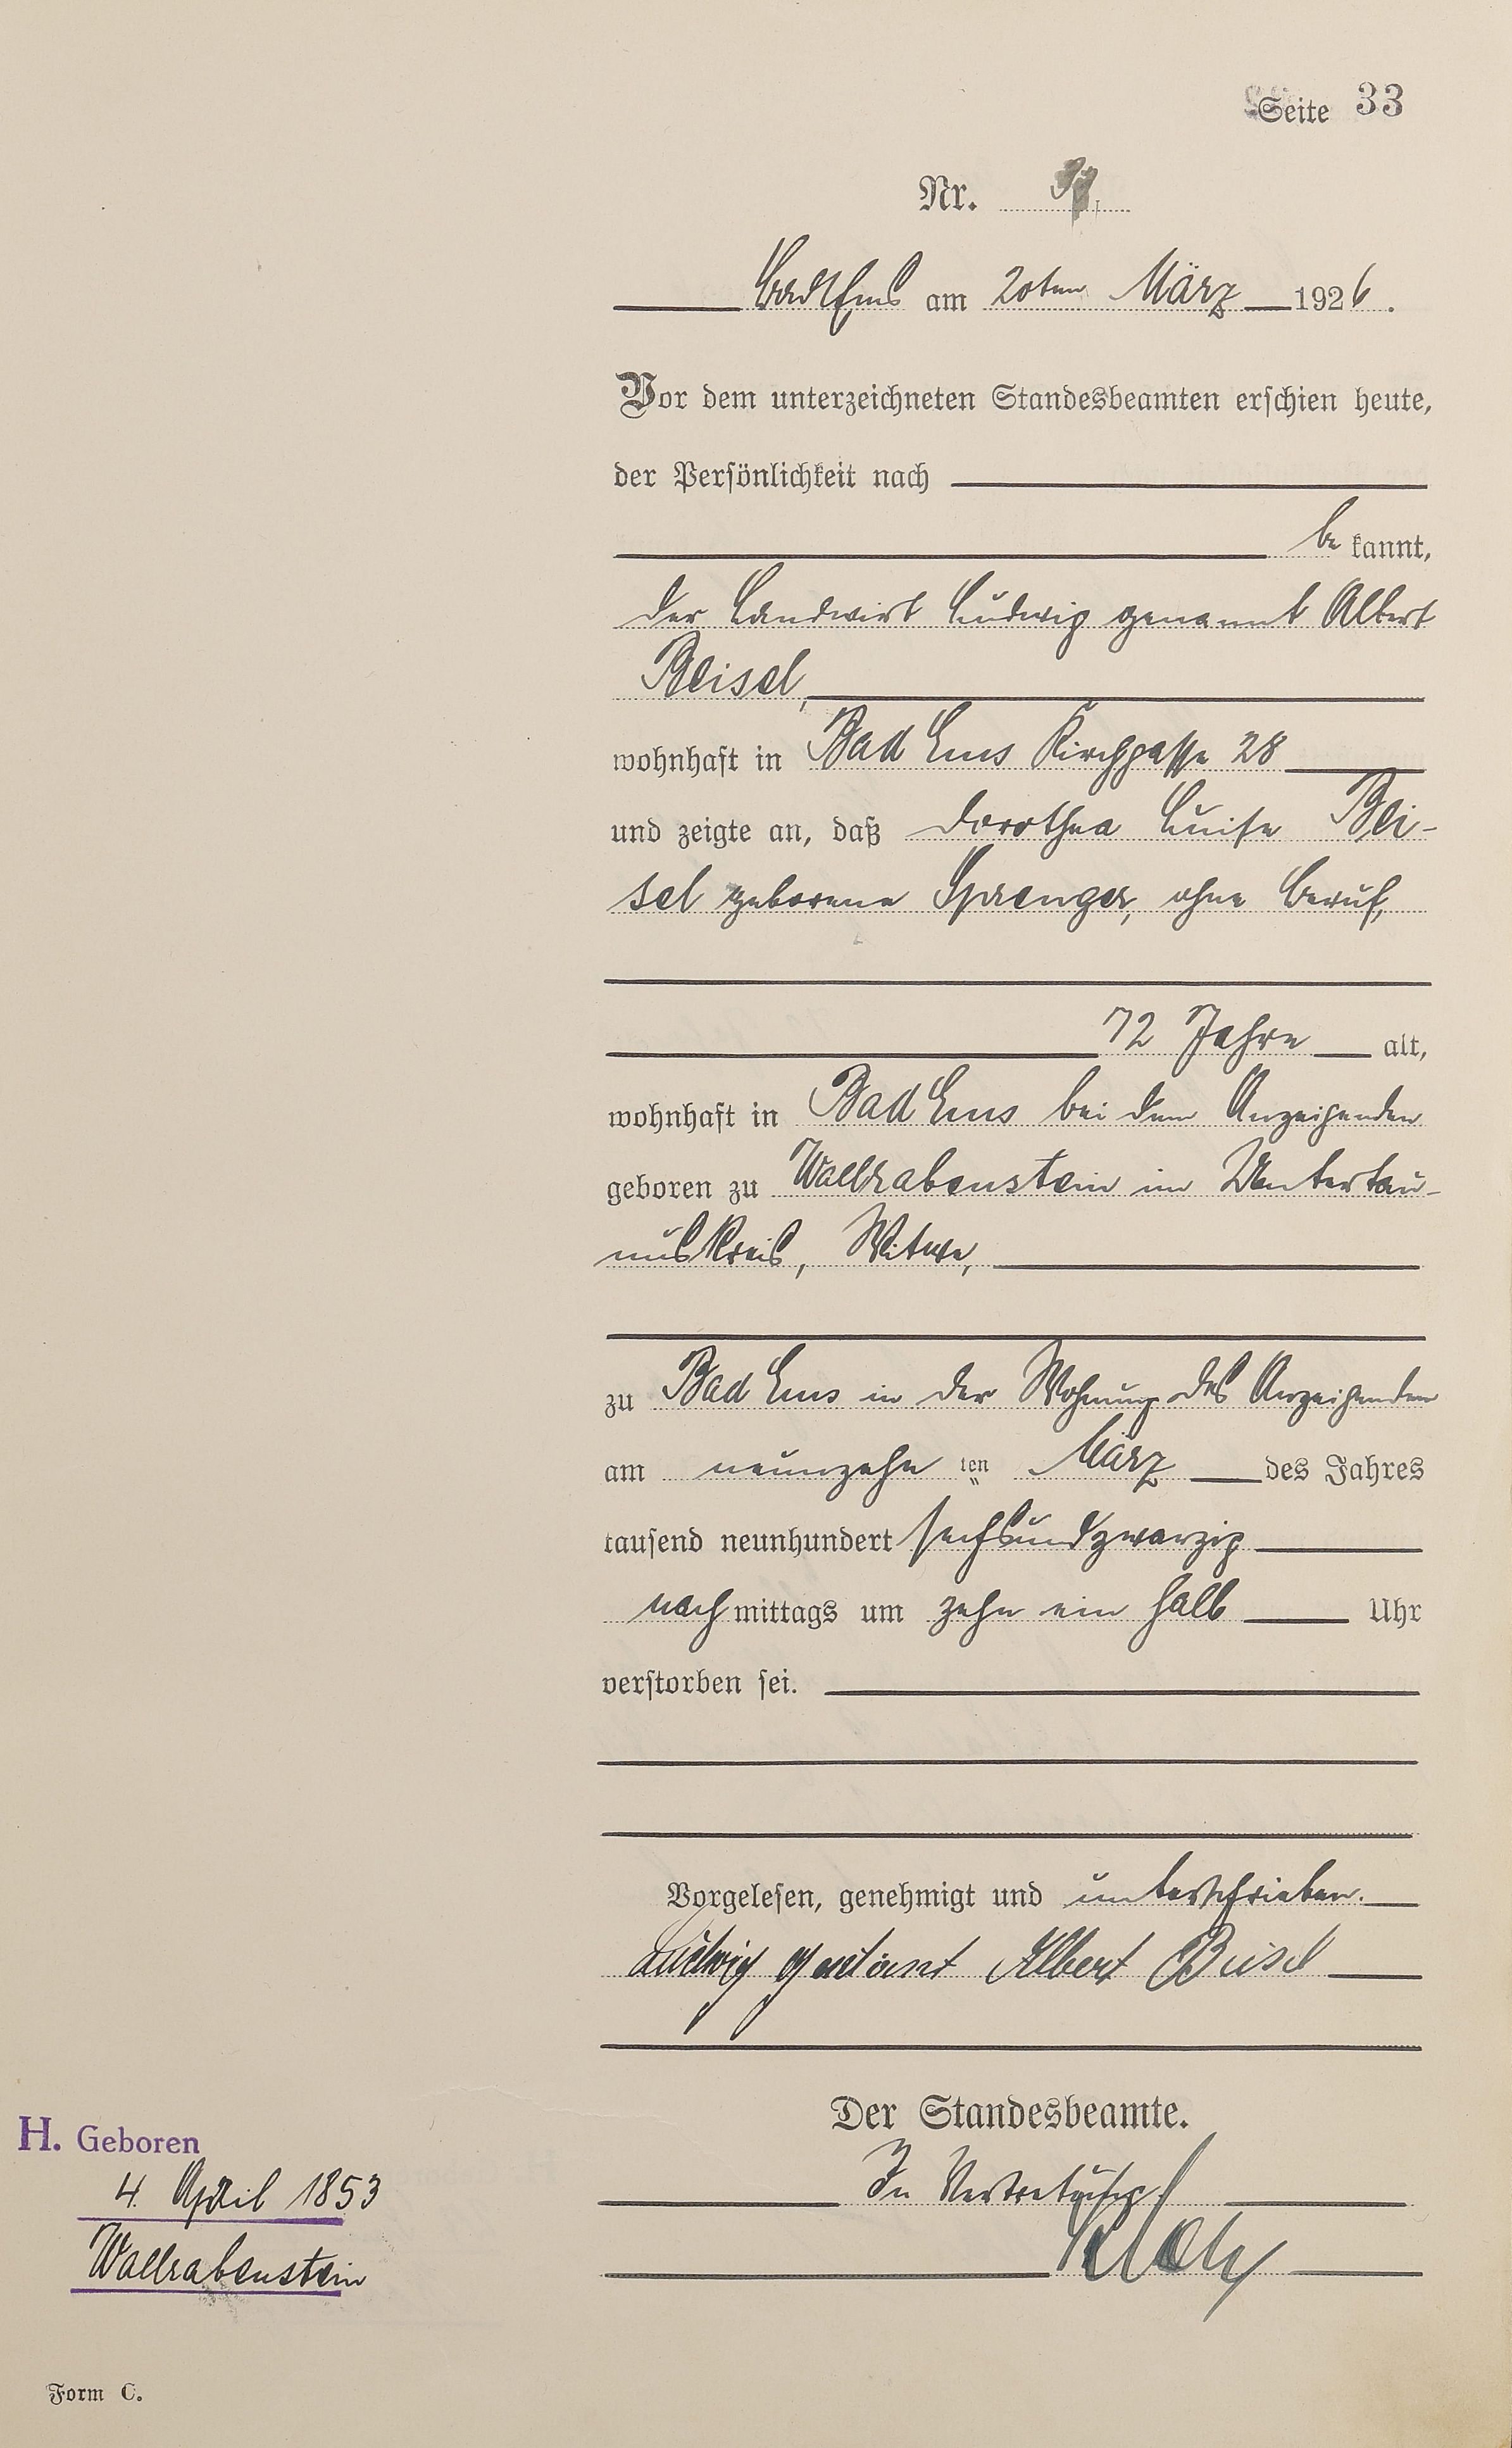 Seite 33
Nr.
Bad Ems am 20ten März 1926.
Vor dem unterzeichneten Standesbeamten erschien heute,
der Persönlichkeit nach
be kannt,
der Landwirt Ludwig genannt Albert
Beisel,
wohnhaft in Bad Ems Kirchgasse 28
und zeigte an, daß Dorothea Luise Bei-
sel geborene Sprenger, ohne Beruf,
72 Jahre alt,
wohnhaft in Bad Ems bei dem Anzeigenden
geboren zu Wallrabenstein im Untertau-
nuskreis, Witwe,
zu Bad Ems in der Wohnung des Anzeigenden
am neunzehn ten März des Jahres
tausend neunhundert sechsundzwanzig
nachmittags um zehn ein halb Uhr
verstorben sei.
Vorgelesen, genehmigt und unterschrieben.
Ludwig genannt Albert Beisel
Der Standesbeamte.
H. Geboren
In Vertretung
4. April 1853
Wallrabenstein
Form C.